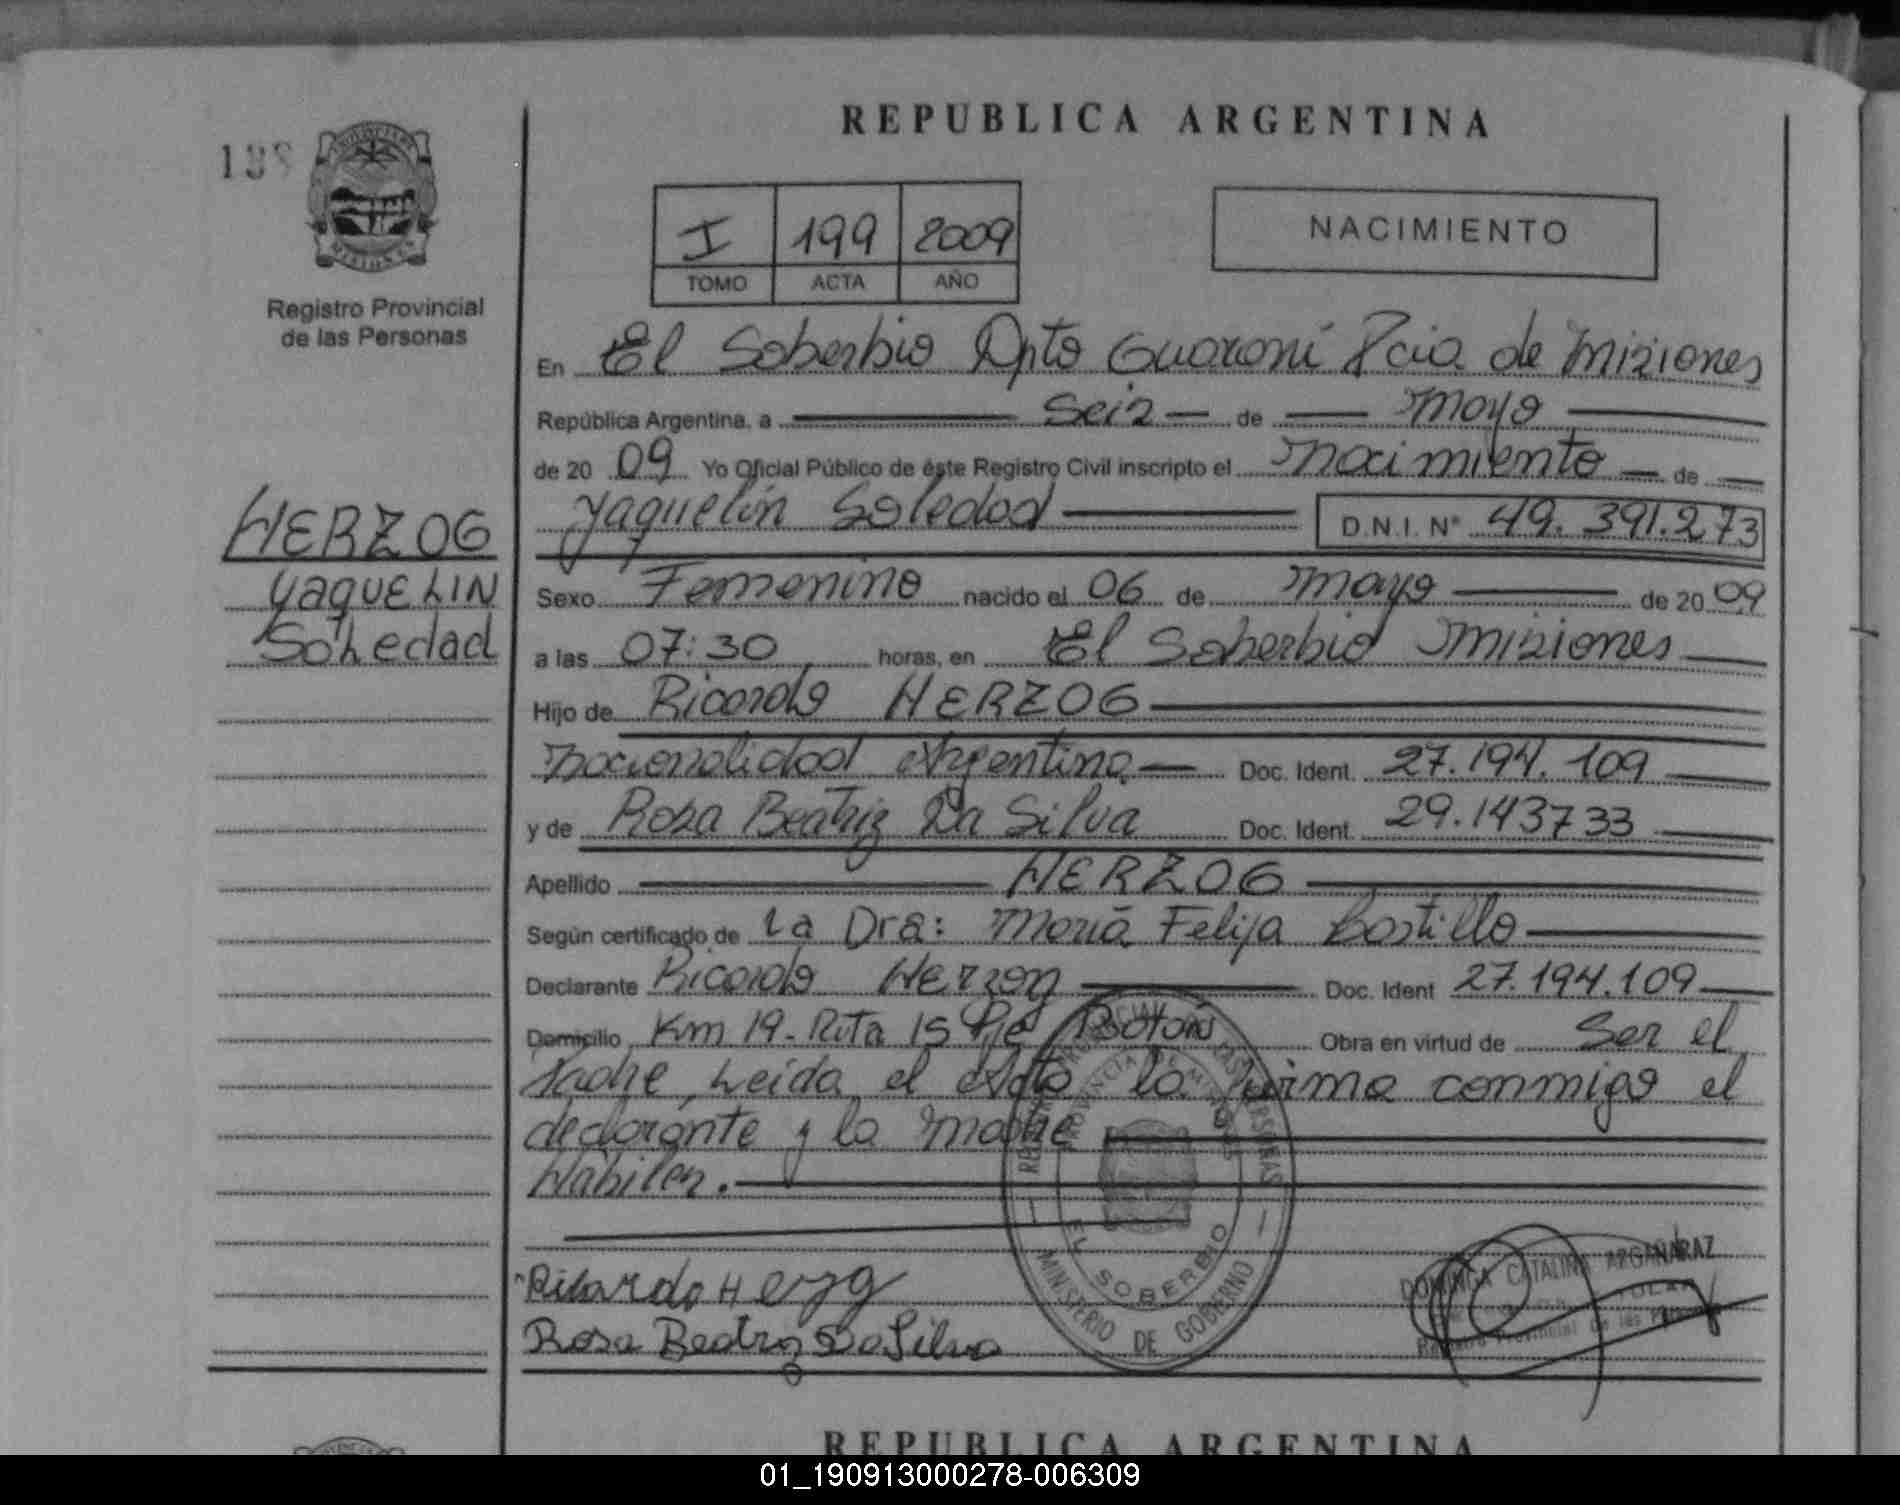 REPUBLICA ARGENTINA
Registro Provincial
de las Personas
I 199 2009
TOMO ACTA AÑO
NACIMIENTO
En El Soberbio Dpto Guaraní Pcia de Misiones
República Argentina, a Seis de Mayo
de 2009 Yo Oficial Público de éste Registro Civil inscripto el Nacimiento de
Yaquelín Soledad D.N.I. N° 49.391.273
HERZOG
YaquELIN
SoLedad
Sexo Femenino nacido el 06 de Mayo de 2009
a las 07:30 horas, en El Soberbio Misiones
Hijo de Ricardo HERZOG
Nacionalidad Argentina Doc. Ident. 27.194.109
y de Rosa Beatriz Da Silva Doc. Ident. 29.143733
Apellido HERZOG
Según certificado de La Dra: María Felisa Costillo
Declarante Ricardo Herzog Doc. Ident 27.194.109
Domicilio Km 19-Ruta 15 Obra en virtud de Ser el
Padre, Leida el Acta la firma conmigo el
declarante y la Madre
Habiles.
REGISTRO PROVINCIAL DE LAS PERSONAS
PROVINCIA DE MISIONES
EL SOBERBIO
MINISTERIO DE GOBERNO
Ricardo Herzg
Rosa Beatriz Da Silva
DOMINGA CATALINA ARGAÑARAZ
Registro Provincial de las Personas
REPUBLICA ARGENTINA
01_190913000278-006309